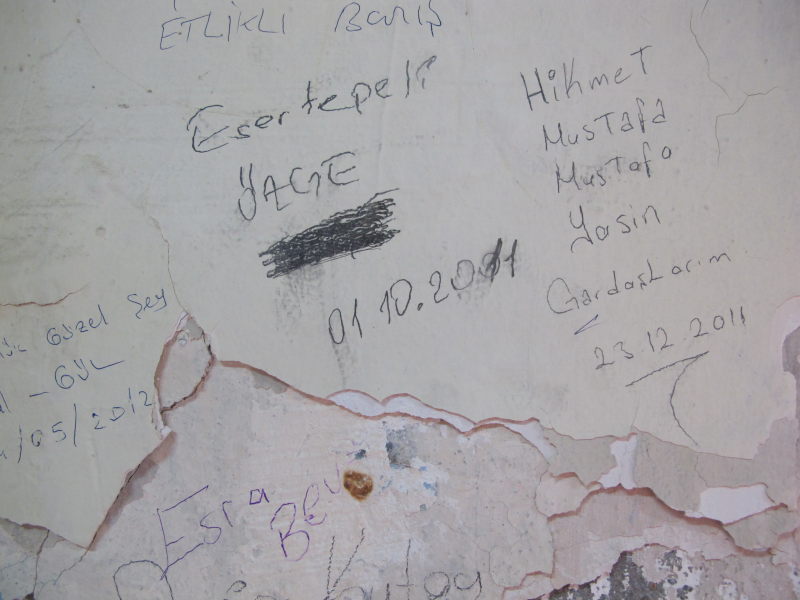 ETLİKLİ BARIŞ
Esertepeli
01.10.2011
Hikmet
Mustafa
Mustafa
Yasin
Gardaşlarım
23.12.2011
Güzel Şey
GÜL
/05/2012
Esra
Kutay